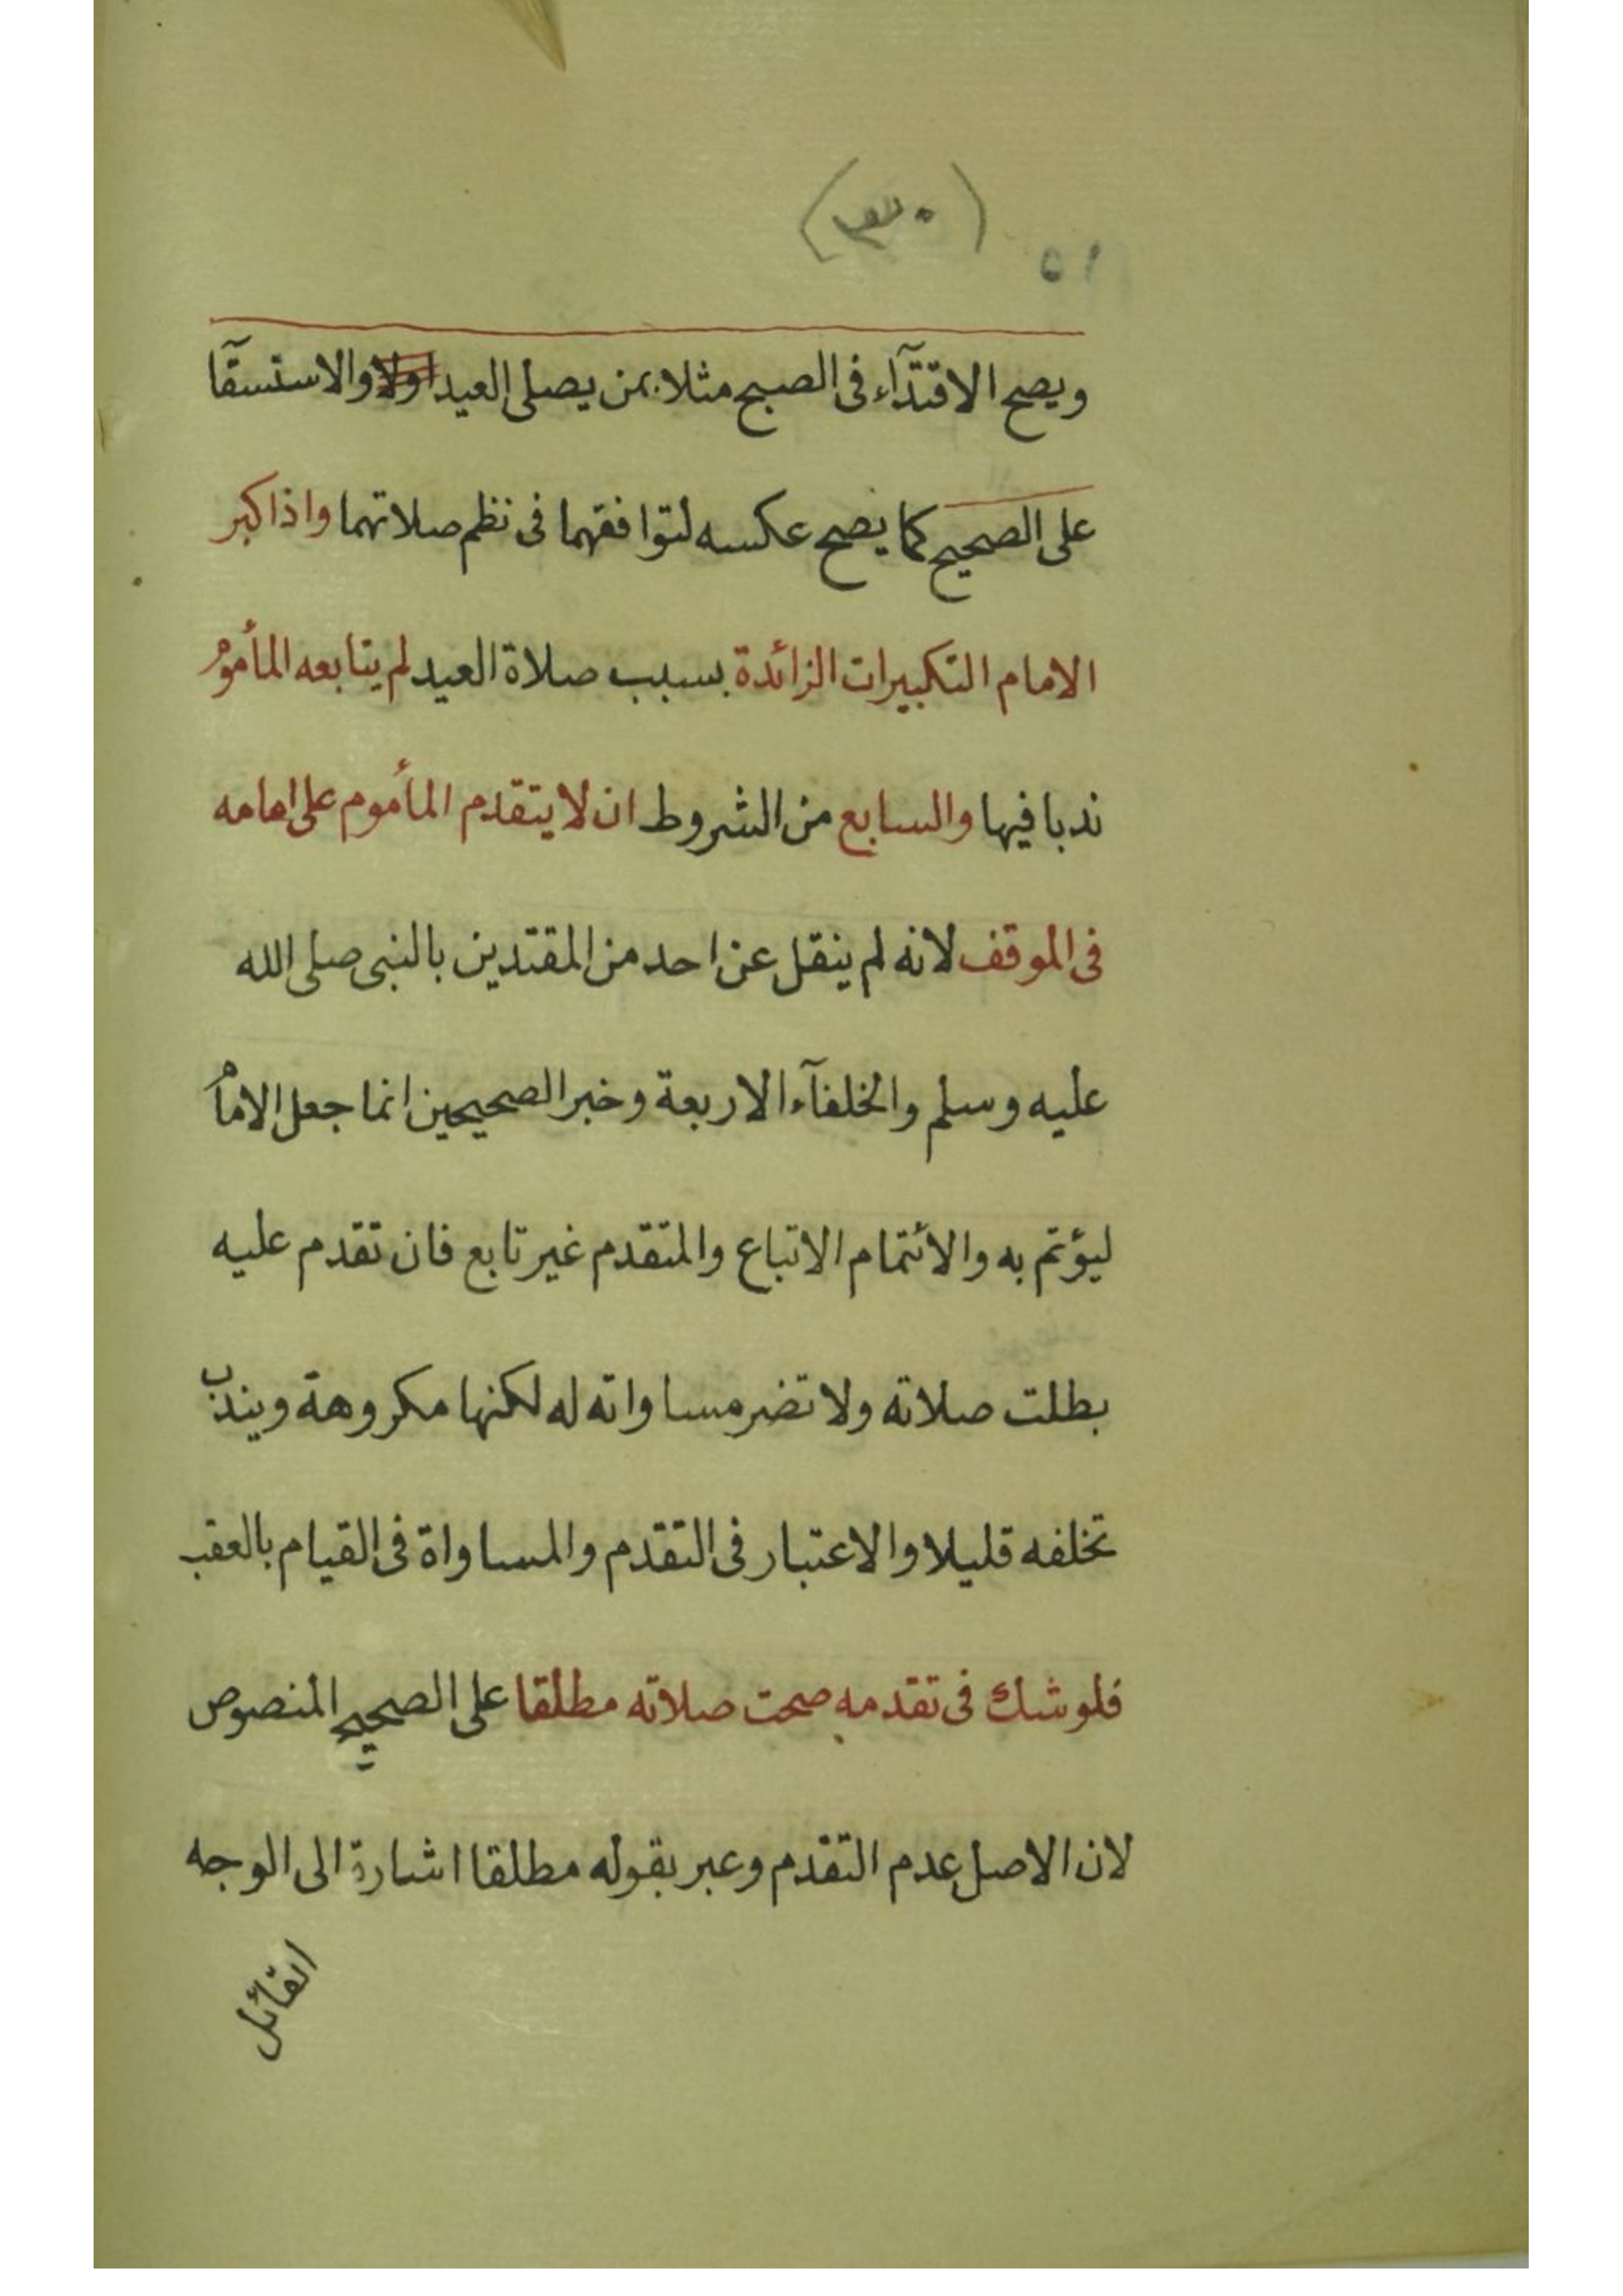 (٣٠)
٥١
ويصح الاقتدآء فى الصبح مثلا بمن يصلى العيد اولا والاستسقآ
على الصحيح كما يصح عكسه لتوافقهما فى نظم صلاتهما واذا كبر
الامام التكبيرات الزائدة بسبب صلاة العيد لم يتابعه المأموم
ندبا فيها والسابع من الشروط ان لا يتقدم المأموم على امامه
فى الموقف لانه لم ينقل عن احد من المقتدين بالنبى صلى الله
عليه وسلم والخلفآء الاربعة وخبر الصحيحين انما جعل الامام
ليؤتم به والائتمام الاتباع والمتقدم غير تابع فان تقدم عليه
بطلت صلاته ولا تضر مساواته له لكنها مكروهة ويندب
تخلفه قليلا والاعتبار فى التقدم والمساواة فى القيام بالعقب
فلو شك فى تقدمه صحت صلاته مطلقا على الصحيح المنصوص
لان الاصل عدم التقدم وعبر بقوله مطلقا اشارة الى الوجه
القائل